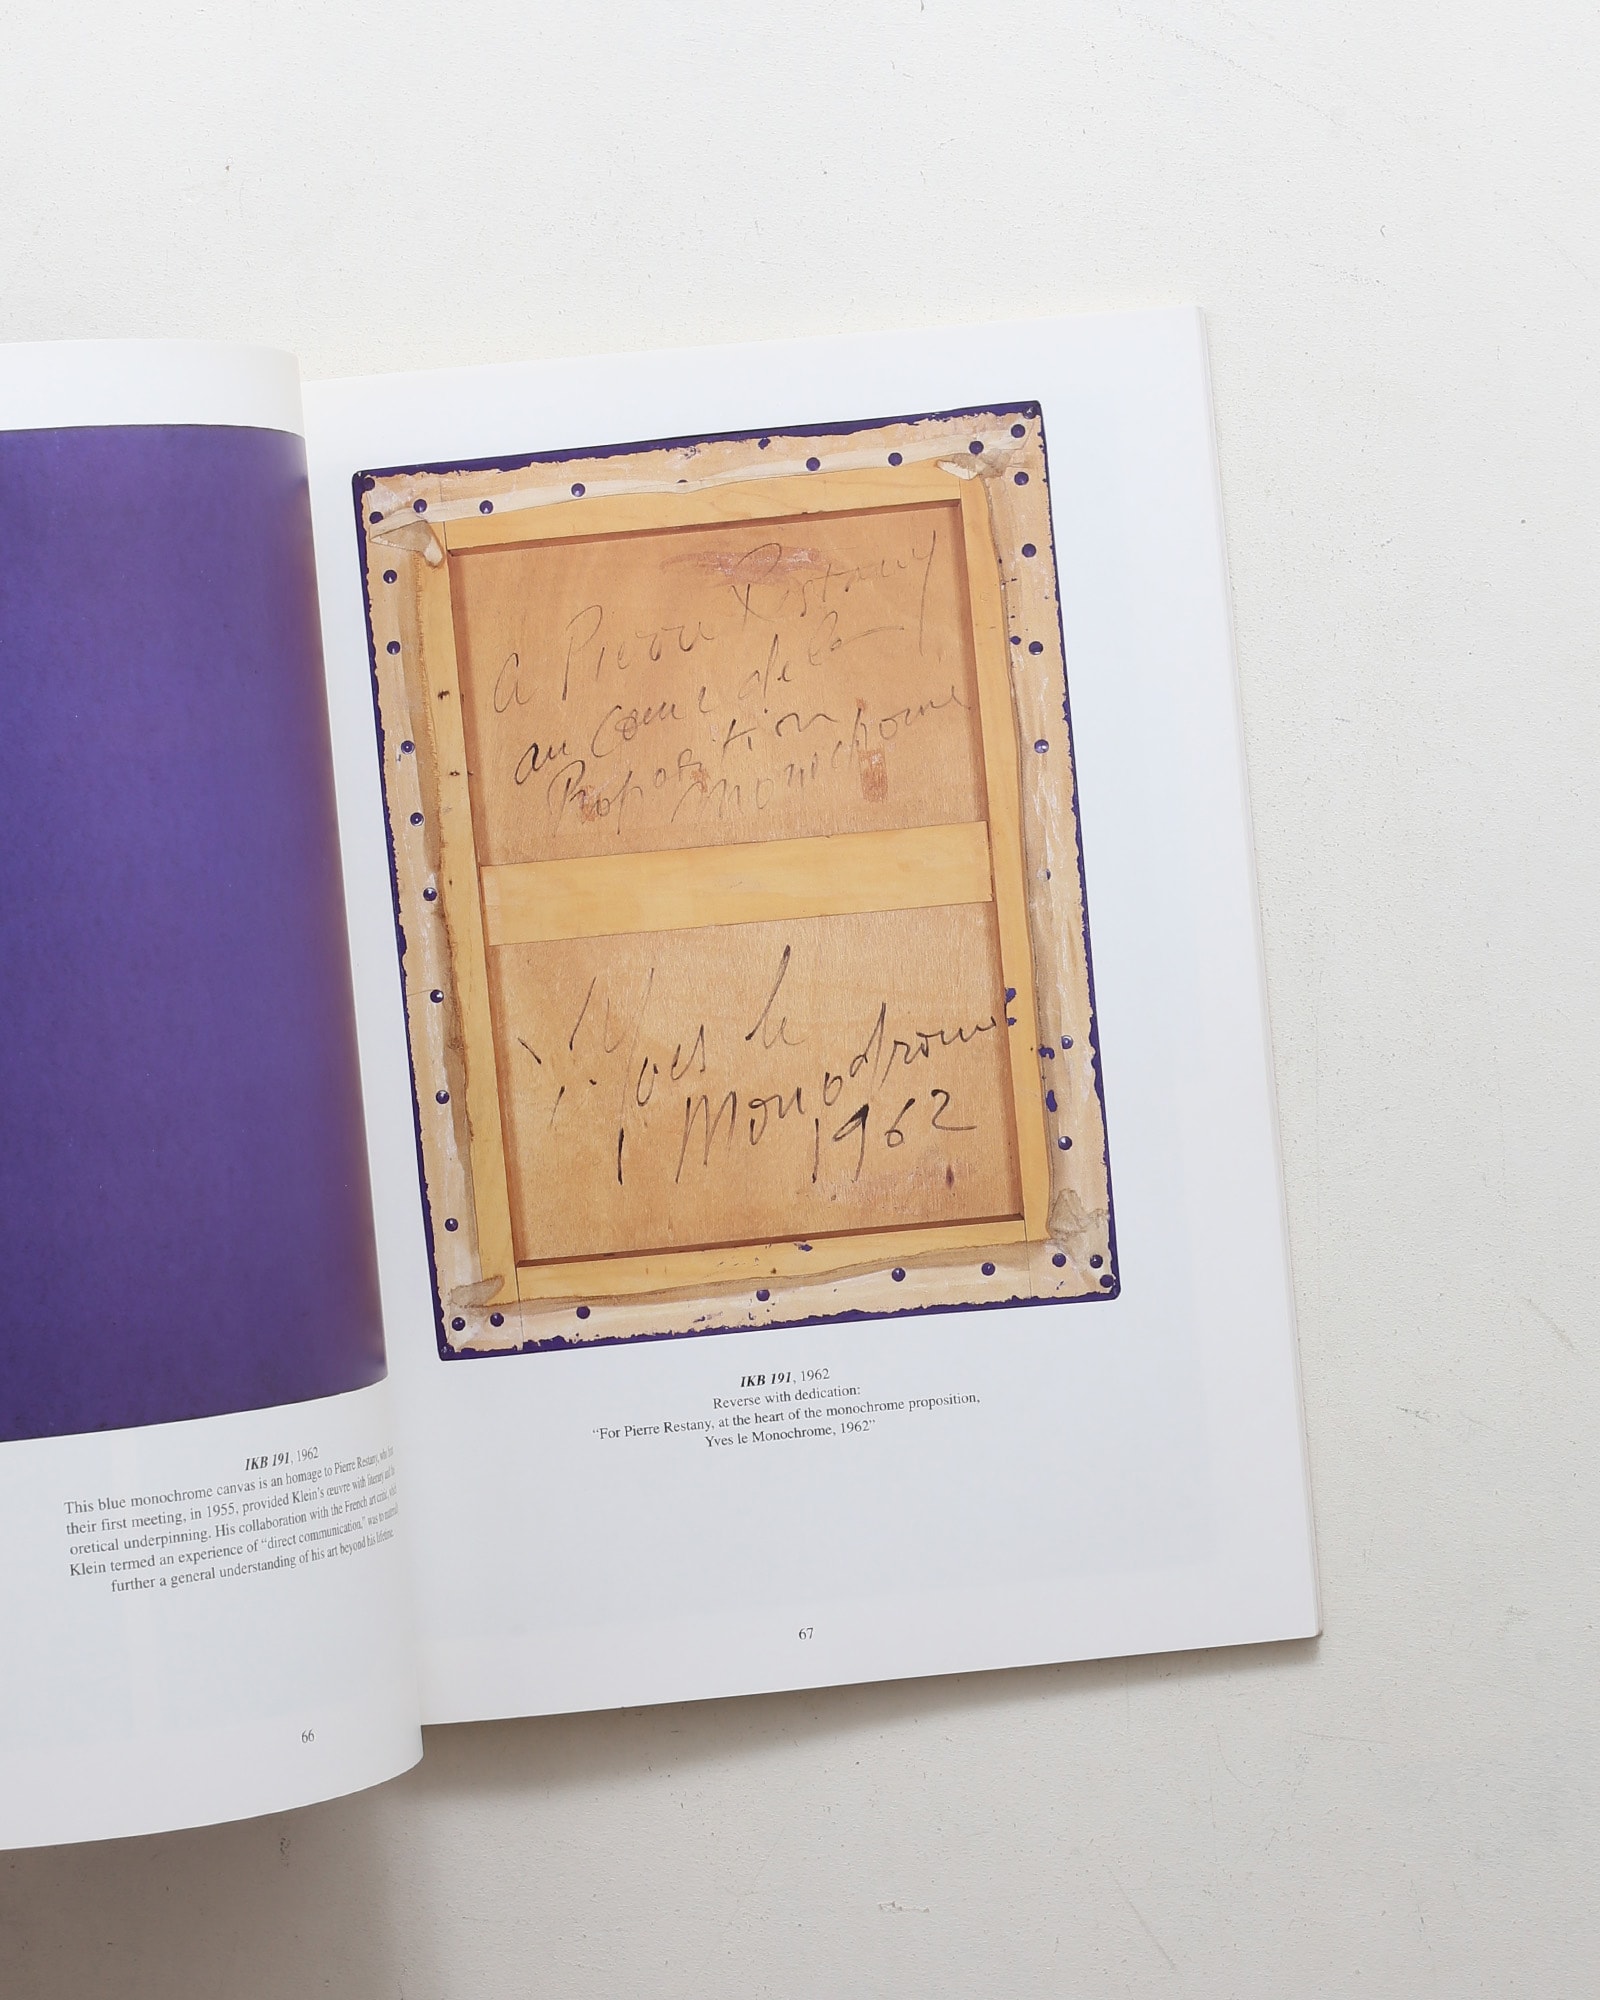 IKB 191, 1962
This blue monochrome canvas is an homage to Pierre Restany, who
their first meeting, in 1955, provided Klein's œuvre with literary and
oretical underpinning. His collaboration with the French art critic,
Klein termed an experience of "direct communication," was to
further a general understanding of his art beyond his lifetime.
66
A Pierre Restany
au Coeur de la
Proposition
Monochrome
Yves le
Monochrome
1962
IKB 191, 1962
Reverse with dedication:
“For Pierre Restany, at the heart of the monochrome proposition,
Yves le Monochrome, 1962”
67